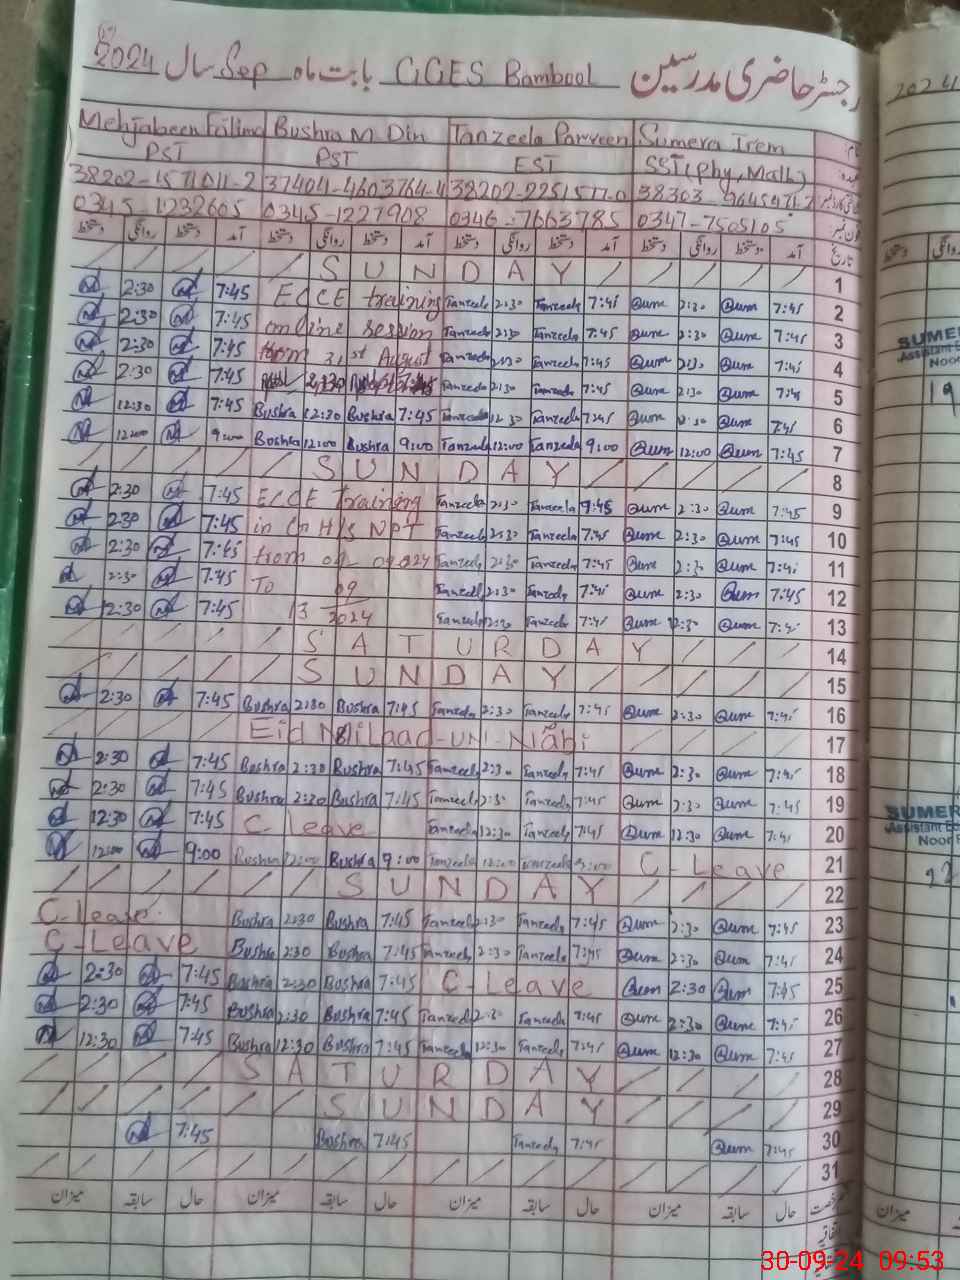 رجسٹر حاضری مدرسین GGES Bambool بابت ماہ Sep سال 2024
Mehjabeen Fatima Bushra M Din Tanzeela Parveen Sumera Irem نام
PST PST EST SST(Phy, Math) عہدہ
38202-1571011-2 37404-4603764-4 38202-2251517-0 38303
0345-1232605 0345-1227908 0346-7663785 0347-7505105
دستخط روانگی دستخط آمد دستخط روانگی دستخط آمد دستخط روانگی دستخط آمد دستخط روانگی دستخط آمد تاریخ
SUNDAY 1
2:30 7:45 ECCE training Tanzeela 2:30 Tanzeela 7:45 Qum 2:30 Qum 7:45 2
2:30 7:45 online session Tanzeela 2:30 Tanzeela 7:45 Qum 2:30 Qum 7:45 3
2:30 7:45 from 31st August Tanzeela 2:30 Tanzeela 7:45 Qum 2:30 Qum 7:45 4
2:30 7:45 Tanzeela 2:30 Tanzeela 7:45 Qum 2:30 Qum 7:45 5
12:30 7:45 Bushra 12:30 Bushra 7:45 Tanzeela 12:30 Tanzeela 7:45 Qum 12:30 Qum 7:45 6
12:00 9:00 Bushra 12:00 Bushra 9:00 Tanzeela 12:00 Tanzeela 9:00 Qum 12:00 Qum 7:45 7
SUNDAY 8
2:30 7:45 ECCE Training Tanzeela 2:30 Tanzeela 7:45 Qum 2:30 Qum 7:45 9
2:30 7:45 in GHS NPT Tanzeela 2:30 Tanzeela 7:45 Qum 2:30 Qum 7:45 10
2:30 7:45 from 09 Tanzeela 2:30 Tanzeela 7:45 Qum 2:30 Qum 7:45 11
2:30 7:45 To 09 Tanzeela 2:30 Tanzeela 7:45 Qum 2:30 Qum 7:45 12
12:30 7:45 13 2024 Tanzeela Tanzeela 7:45 Qum 12:30 Qum 7:45 13
SATURDAY 14
SUNDAY 15
2:30 7:45 Bushra 2:30 Bushra 7:45 Tanzeela 2:30 Tanzeela 7:45 Qum 2:30 Qum 7:45 16
Eid Milaad-un-Nabi 17
2:30 7:45 Bushra 2:30 Bushra 7:45 Tanzeela 2:30 Tanzeela 7:45 Qum 2:30 Qum 7:45 18
2:30 7:45 Bushra 2:30 Bushra 7:45 Tanzeela 2:30 Tanzeela 7:45 Qum 2:30 Qum 7:45 19
12:30 7:45 C Leave Tanzeela 12:30 Tanzeela 7:45 Qum 12:30 Qum 7:45 20
12:00 9:00 Bushra 12:00 Bushra 9:00 Tanzeela 12:00 Tanzeela 9:00 C-Leave 21
SUNDAY 22
C-leave Bushra 2:30 Bushra 7:45 Tanzeela 2:30 Tanzeela 7:45 Qum 2:30 Qum 7:45 23
C-Leave Bushra 2:30 Bushra 7:45 Tanzeela 2:30 Tanzeela 7:45 Qum 2:30 Qum 7:45 24
2:30 7:45 Bushra 2:30 Bushra 7:45 C-Leave Qum 2:30 Qum 7:45 25
2:30 7:45 Bushra 2:30 Bushra 7:45 Tanzeela 2:30 Tanzeela 7:45 Qum 2:30 Qum 7:45 26
12:30 7:45 Bushra 12:30 Bushra 7:45 Tanzeela 12:30 Tanzeela 7:45 Qum 12:30 Qum 7:45 27
SATURDAY 28
SUNDAY 29
7:45 Bushra 7:45 Tanzeela 7:45 Qum 7:45 30
31
میزان سابقہ حال میزان سابقہ حال میزان سابقہ حال میزان سابقہ حال
اتفاقیہ
2024
دستخط
SUMER
Assistant E
Noor
19
SUMER
Assistant Ed
Noor
22
میزان
30-09-24 09:53